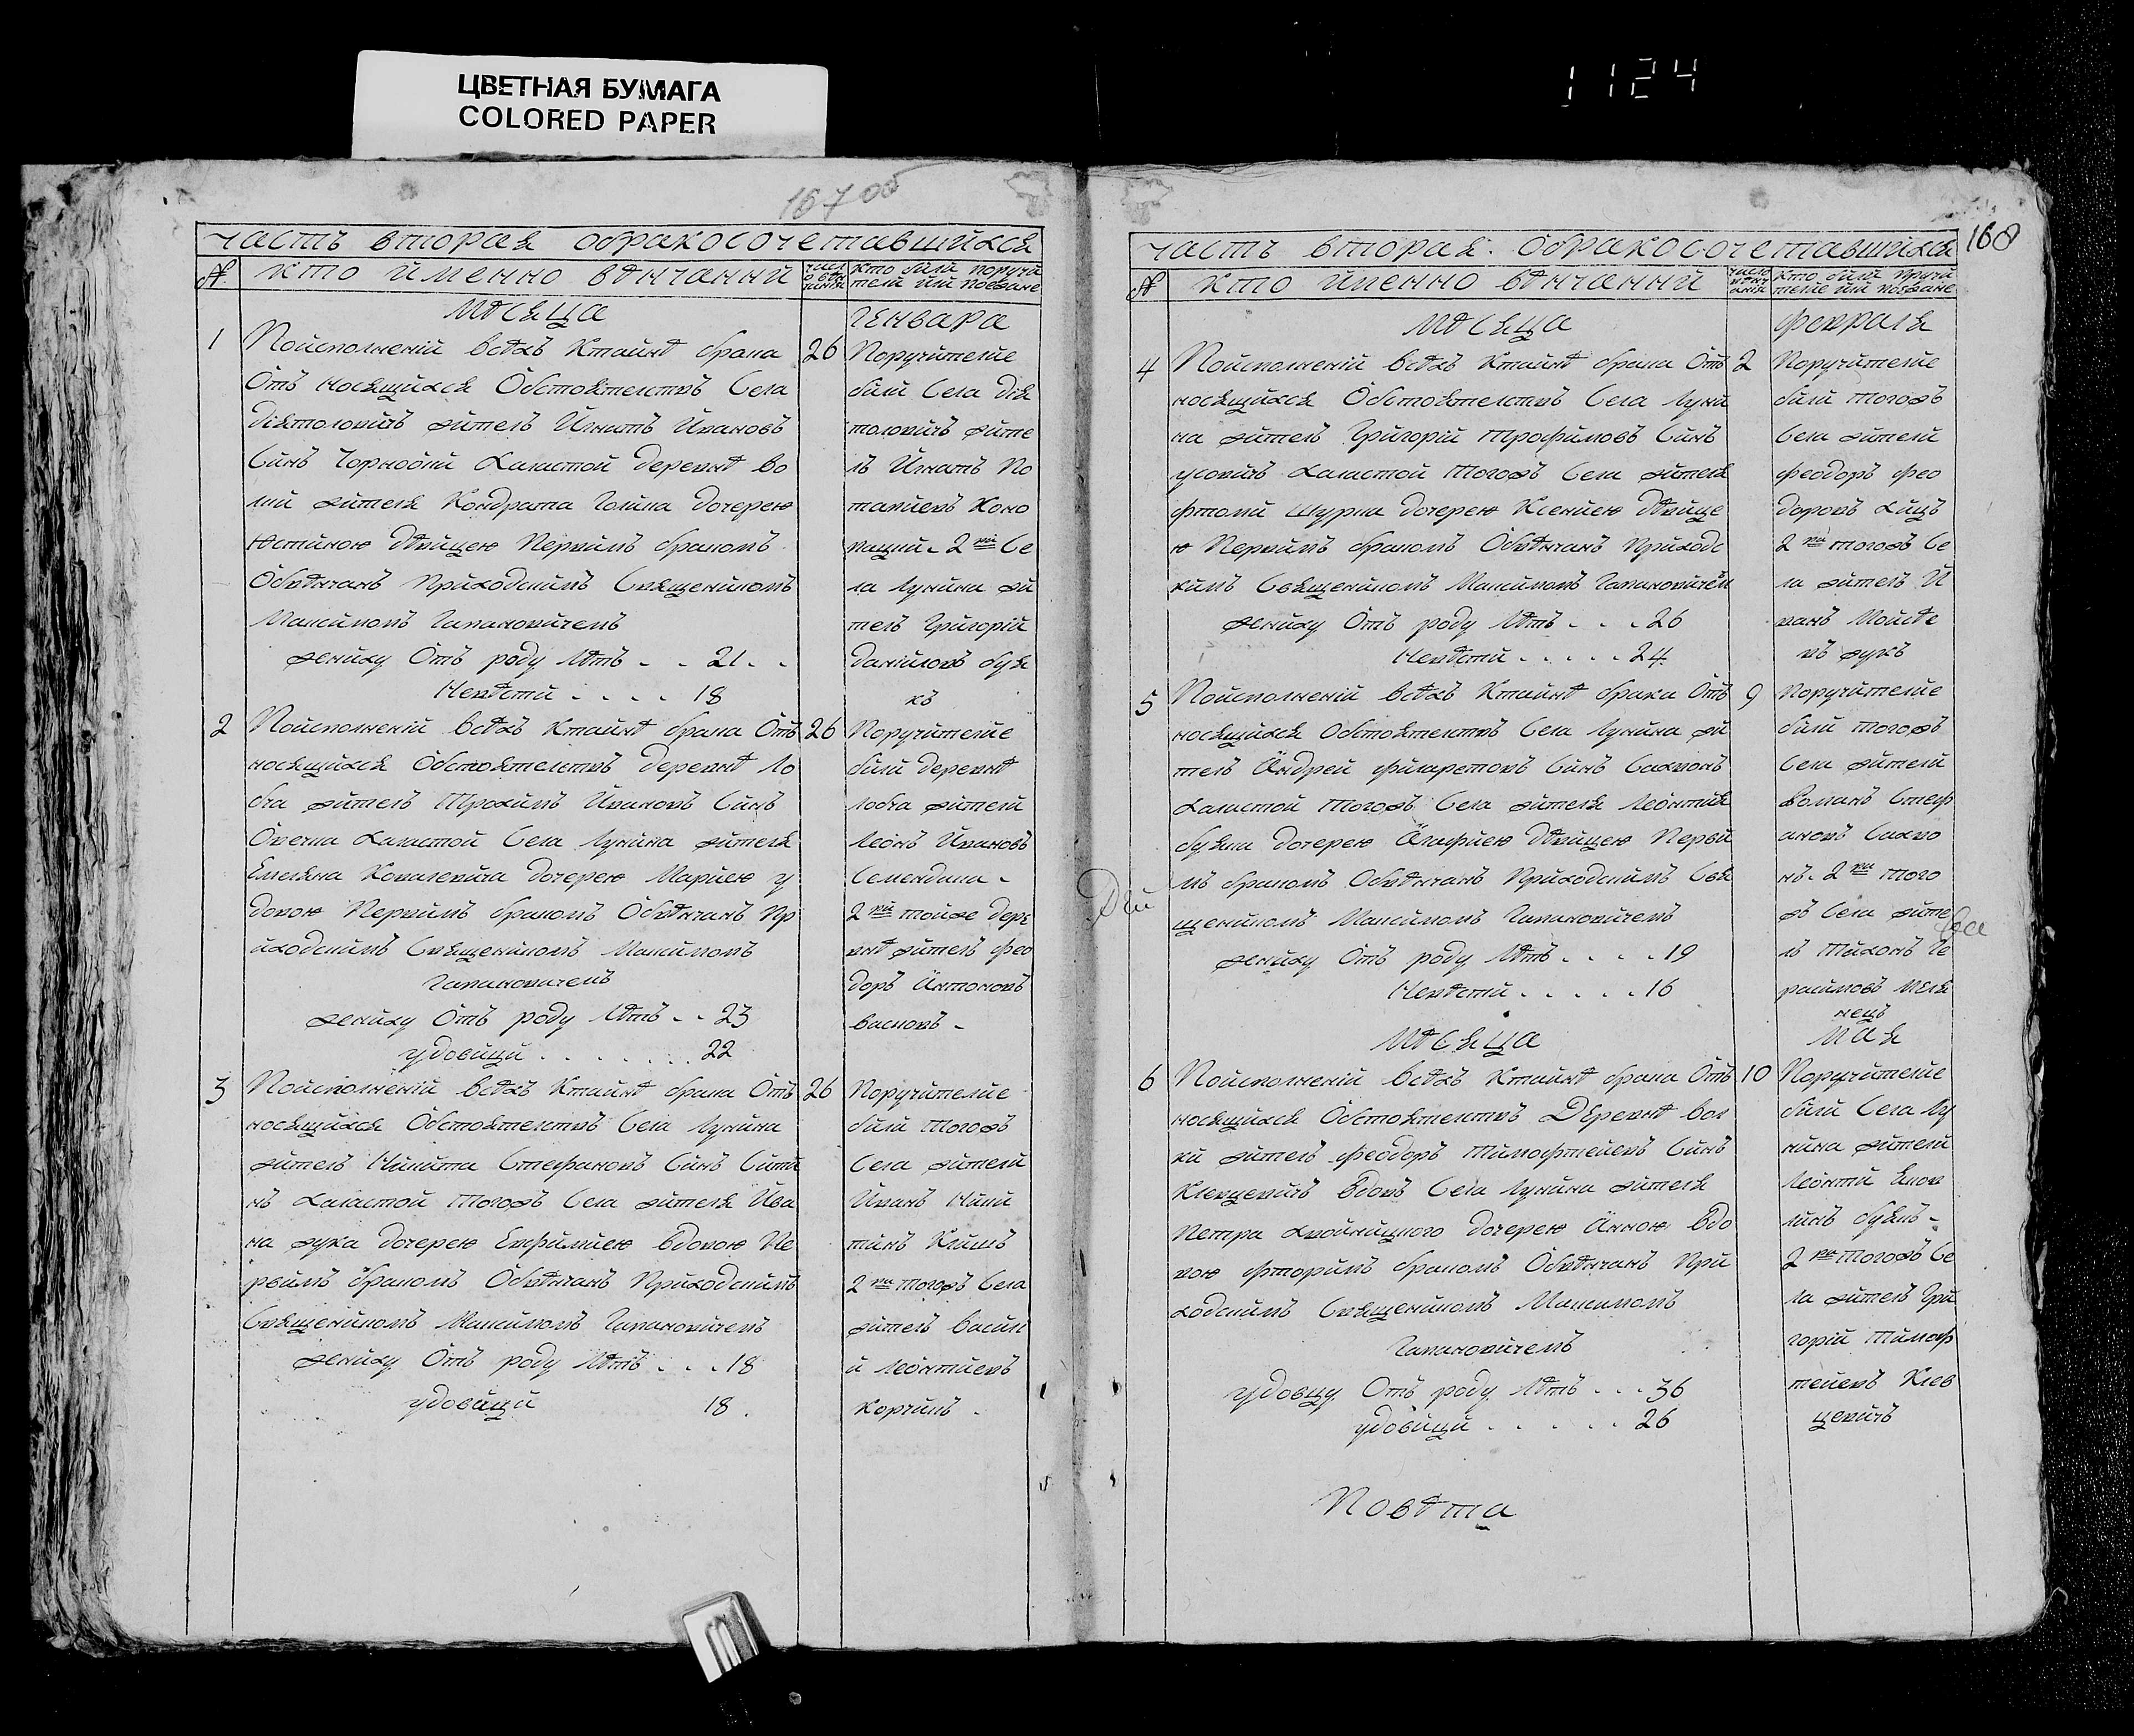 ЦВЕТНАЯ БУМАГА
COLORED PAPER
1124
167 об
часть вторая обракосочетавшихся
№ кто йменно вѣнчанный
число вѣн чанія
Кто были поручи
тели или поезжане
Мѣсяца
Генвара
1 Поисполненій всѣхъ Ктайнѣ брака 26
Отъ носящихся Обстоятелствъ Села
Дятоловичъ жителъ Игнатъ Ивановъ
Синъ Чорнобай Халастой деревнѣ Во
лки жителя Кондрата Голика дочерею
Юстиною Дѣвицею Первимъ бракомъ
Обвѣнчанъ Приходскимъ Священикомъ
Максимомъ Гапановичемъ
жениху Отъ роду Лѣтъ . . 21 . .
Невѣсти . . . . 18
Поручителие
били Села Дя
толовичъ жите
лъ Игнатъ По
тапиевъ Коно
пацкий. 2 ий Се
ла Лунина жи
телъ Григорій
Данійловъ буя
къ
2 Поисполненій всѣхъ Ктайнѣ брака Отъ 26
носящихся Обстоятелствъ деревнѣ Ло
бча жителъ Трохимъ Ивановъ Синъ
Овечка Халастой Села Лунина жителя
Емеляна Ковалевича дочерею Мариею у
довою Первимъ бракомъ Обвѣнчанъ Пр
иходскимъ Священикомъ Максимомъ
Гапановичемъ
жениху Отъ роду Лѣтъ . . 23
удовици . . . . . . . 22
Поручителие
били деревнѣ
Лобча жители
Леонъ Ивановъ
Семендика -
2 ий тойже дере
внѣ жителъ Фео
доръ Антоновъ
Васковъ -
3 Поисполненій всѣхъ Ктайнѣ брака Отъ 26
носящихся Обстоятелствъ Села Лунина
жителъ Никита Стефановъ Синъ Сити
нъ Халастой Тогожъ Села жителя Ива
на жука дочерею Евфимиею Вдовою Пе
рвимъ бракомъ Обвѣнчанъ Приходскимъ
Священикомъ Максимомъ Гапановичемъ
жениху Отъ роду Лѣтъ . . . 18
удовици 18 .
Поручителие
били Тогожъ
Села жители
Иванъ Ники
тинъ Клишъ
2 ий тогожъ Села
жителъ Васили
й Леонтиевъ
Корчикъ -
168
часть вторая. обракосочетавшихся
№ кто йменно вѣнчанный
число вѣнч анія
Кто были поручи
тели или поезжане
Мѣсяца
Февраля
4 Поисполненій всѣхъ Ктайнѣ брака Отъ 2
носящихся Обстоятелствъ Села Луни
на жителъ Григорій Трофимовъ Синъ
Усовичъ Халастой Тогожъ Села жителя
Фтоми Шурка дочерею Ксениею Дѣвице
ю Первимъ бракомъ Обвѣнчанъ Приходс
кимъ Священикомъ Максимомъ Гапановичем
жениху Отъ роду Лѣтъ . . . 26
Невѣсти . . . . . 24
Поручителие
били тогожъ
Села жители
Феодоръ Фео
доровъ Хицъ
2 ий тогожъ Се
ла жителъ И
ванъ Мойсѣе
въ жукъ
5 Поисполненій всѣхъ Ктайнѣ брака Отъ 9
носящихся Обстоятелствъ Села Лунина жи
телъ Андрей Филаретовъ Синъ Сахвонъ
Халастой Тогожъ Села жителя Леонтия
буяка дочерею Агафиею Дѣвицею Перви
мъ бракомъ Обвѣнчанъ Приходскимъ Свя
щеникомъ Максимомъ Гапановичемъ
жениху Отъ роду Лѣтъ . . . . 19
Невѣсти . . . . . 16
Поручителие
били тогожъ
Села жители
Романъ Стеф
ановъ Сахво
нъ. 2 ий того
жъ Села жите
лъ Тихонъ Ге
расимовъ Меля
нецъ
Мѣсяца
Мая
6 Поисполненій всѣхъ Ктайнѣ брака Отъ 10
носящихся Обстоятелствъ Деревнѣ Вол
ки жителъ Феодоръ Тимофтейевъ Синъ
Клевцевичъ Вдовъ Села Лунина жителя
Петра Хвойницкого дочерею Анною Вдо
вою Фторимъ бракомъ Обвѣнчанъ При
ходскимъ Священикомъ Максимомъ
Гапановичемъ
Удовцу Отъ роду Лѣтъ . . . 36
удовици . . . . . 26
Поручителие
били Села Лу
нина жители
Леонтій Яков
ливъ буякъ -
2 ий тогожъ Се
ла жителъ Гри
горій Тимоф
тейевъ Клев
цевичъ
Повѣта